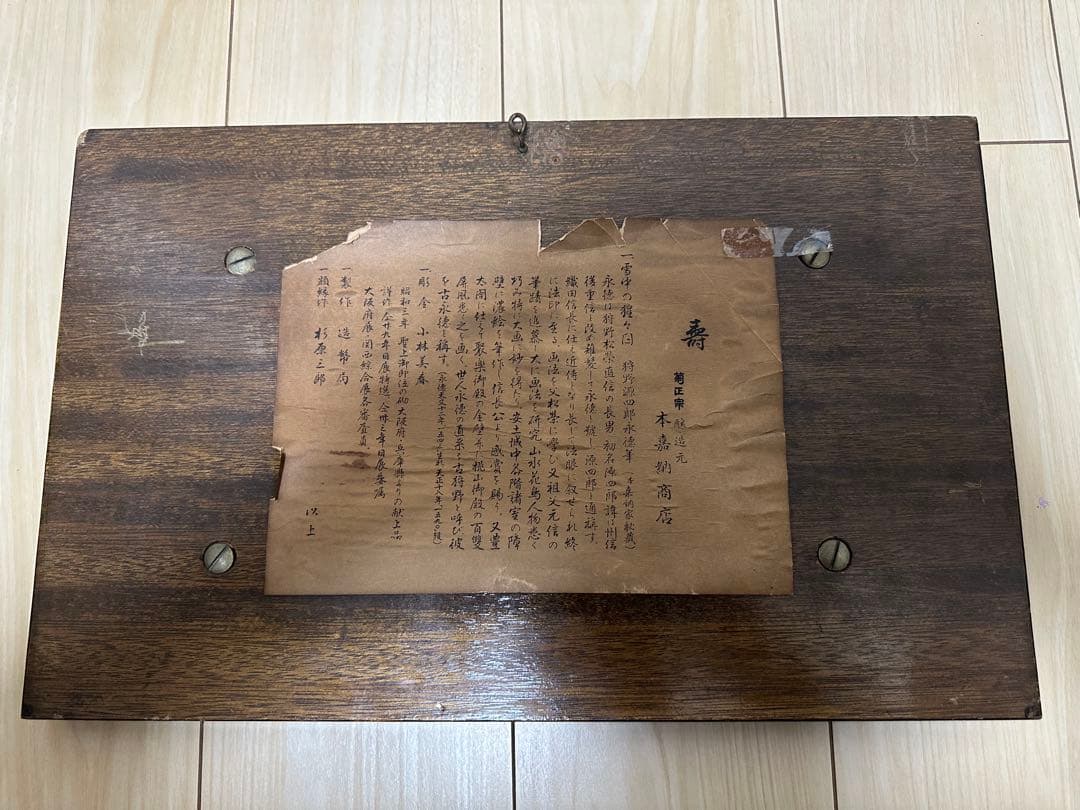 壽
菊正宗 醸造元
本嘉納商店
一、雪中の 図 狩野源四郎永徳筆（本嘉納家秘蔵）
永徳は狩野松栄直信の長男 初名源四郎諱は州信
後重信と改め薙髪して永徳と号し源四郎と通称す。
織田信長に仕え近侍となり長じて法眼に叙せられ終
に法印に至る、画法を父松栄に学び又祖父元信の
筆蹟を追慕し大に画法を研究 山水花鳥人物悉く
巧み特に大画に妙を得たり、安土城中各階諸室の障
壁に濃絵を筆作し信長公より感賞を賜う、又豊
太閤に仕えて聚楽御殿の金壁 桃山御殿の百双
屏風悉く之を画く、世人永徳の直系を古狩野と呼び彼
を古永徳と称す、（永徳天文十二年一五四三生れ天正十八年一五九〇殁）
一、彫金 小林美春
昭和三年 聖上御即位の砌大阪府、兵庫縣よりの献上品
謹作、仝廿九年日展特選、仝卅三年日展委属
大阪府展、関西綜合展各審査員
一、製作 造幣局
一、額縁作 杉原三郎
以上